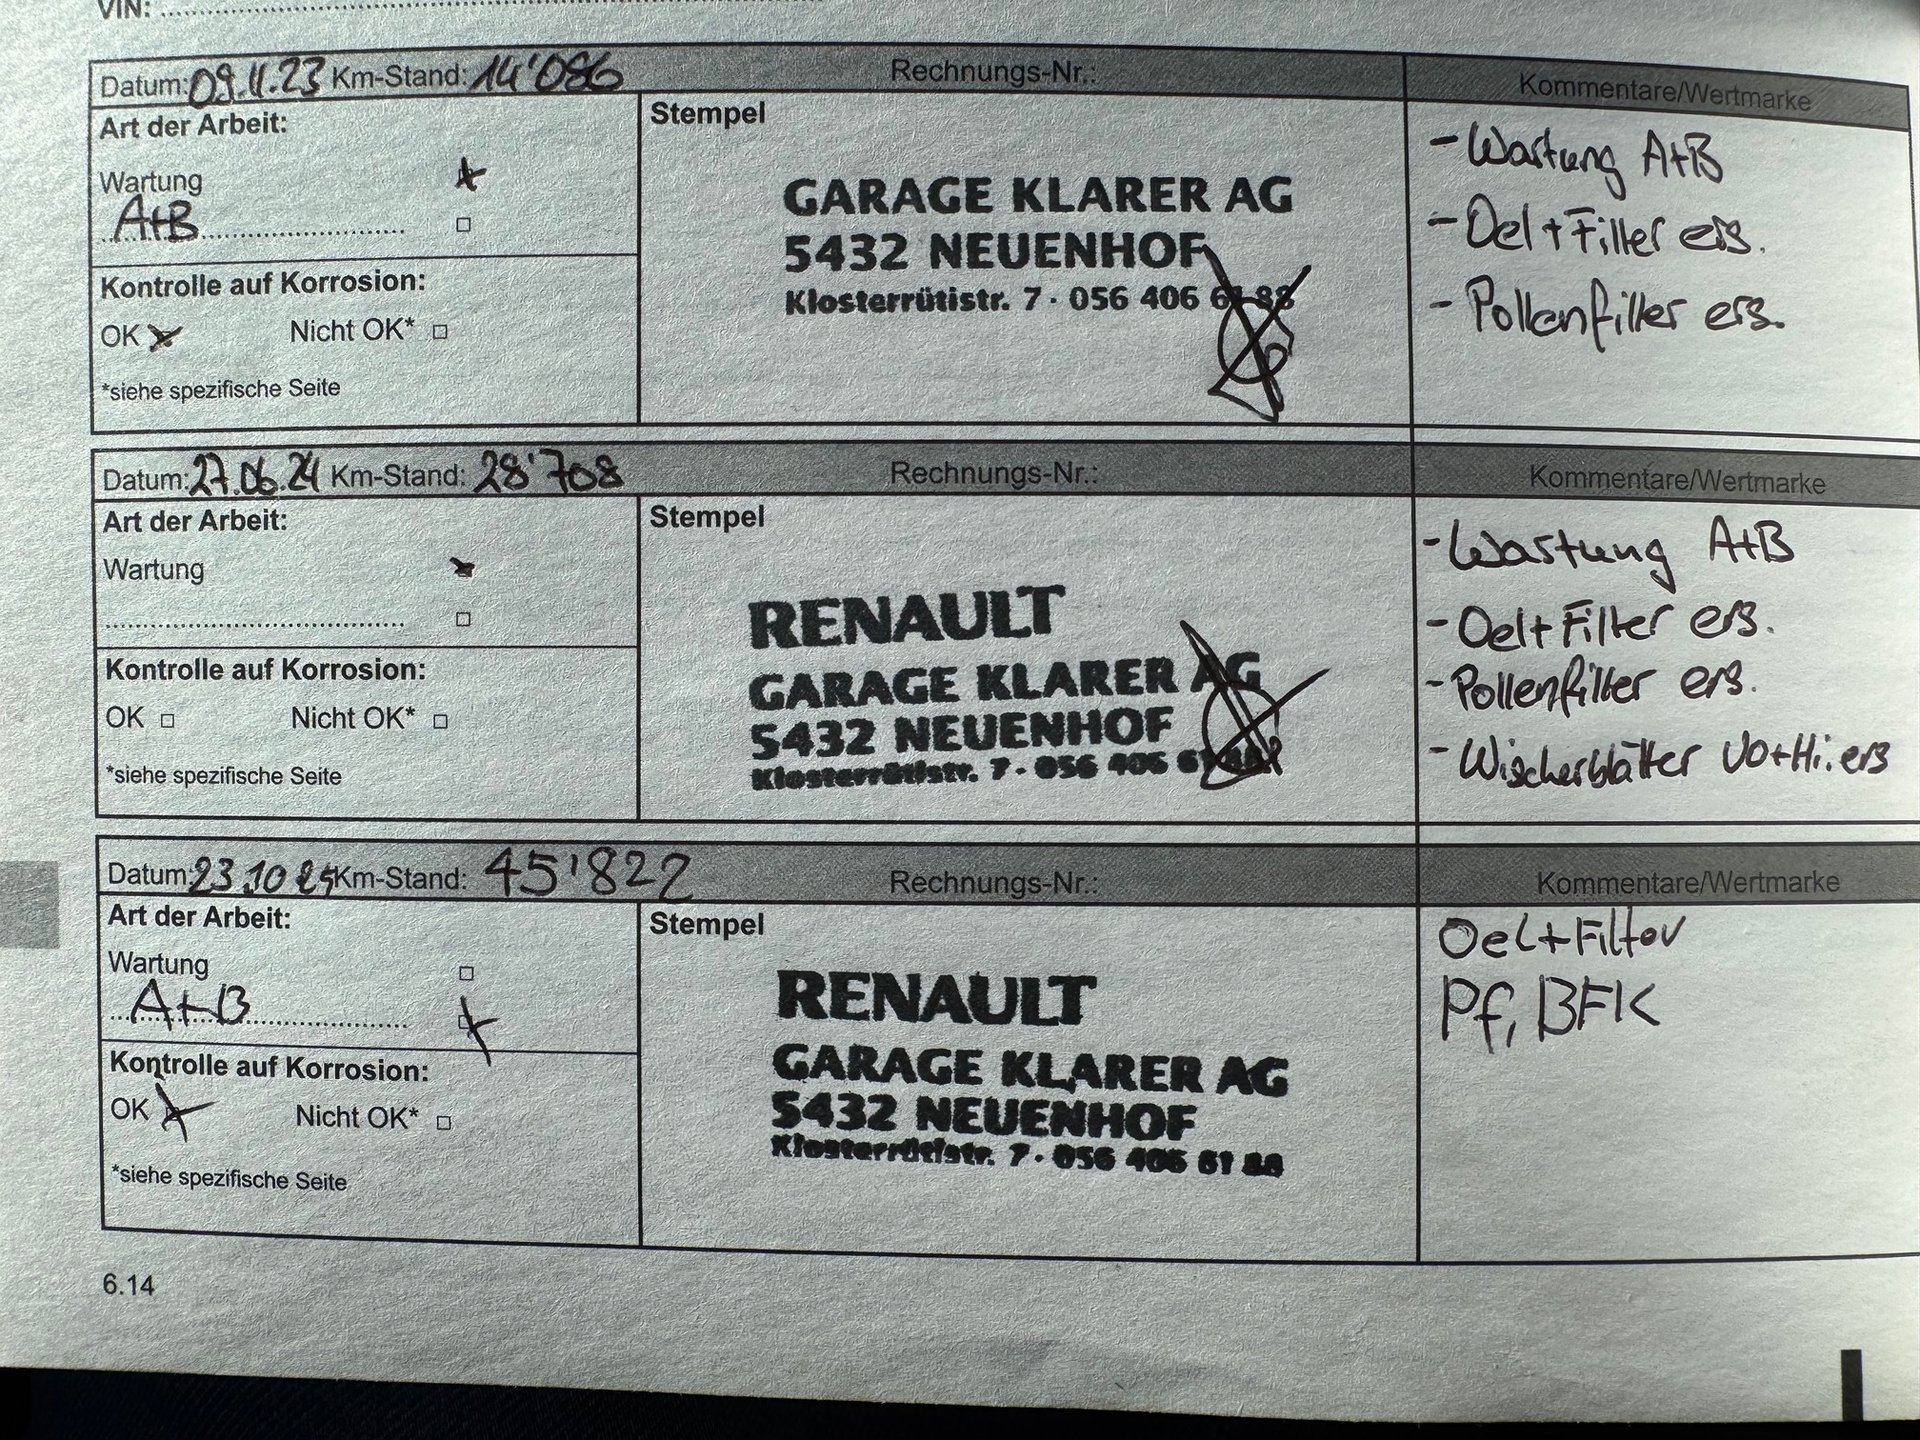 VIN:
Datum: 09.11.23 Km-Stand: 14'086 Rechnungs-Nr.: Kommentare/Wertmarke
Art der Arbeit:
Wartung
A+B
Kontrolle auf Korrosion:
OK Nicht OK*
*siehe spezifische Seite
Stempel
GARAGE KLARER AG
5432 NEUENHOF
Klosterrütistr. 7 · 056 406 61 88
- Wartung A+B
- Oel+Filter ers.
- Pollenfilter ers.
Datum: 27.06.24 Km-Stand: 28'708 Rechnungs-Nr.: Kommentare/Wertmarke
Art der Arbeit:
Wartung
Kontrolle auf Korrosion:
OK Nicht OK*
*siehe spezifische Seite
Stempel
RENAULT
GARAGE KLARER AG
5432 NEUENHOF
Klosterrütistr. 7 · 056 406 61 88
- Wartung A+B
- Oel+Filter ers.
- Pollenfilter ers.
- Wischerblätter Vo+Hi. ers
Datum: 23.10 25 Km-Stand: 45'822 Rechnungs-Nr.: Kommentare/Wertmarke
Art der Arbeit:
Wartung
A+B
Kontrolle auf Korrosion:
OK Nicht OK*
*siehe spezifische Seite
Stempel
RENAULT
GARAGE KLARER AG
5432 NEUENHOF
Klosterrütistr. 7 · 056 406 61 88
Oel+Filter
Pf, BFK
6.14